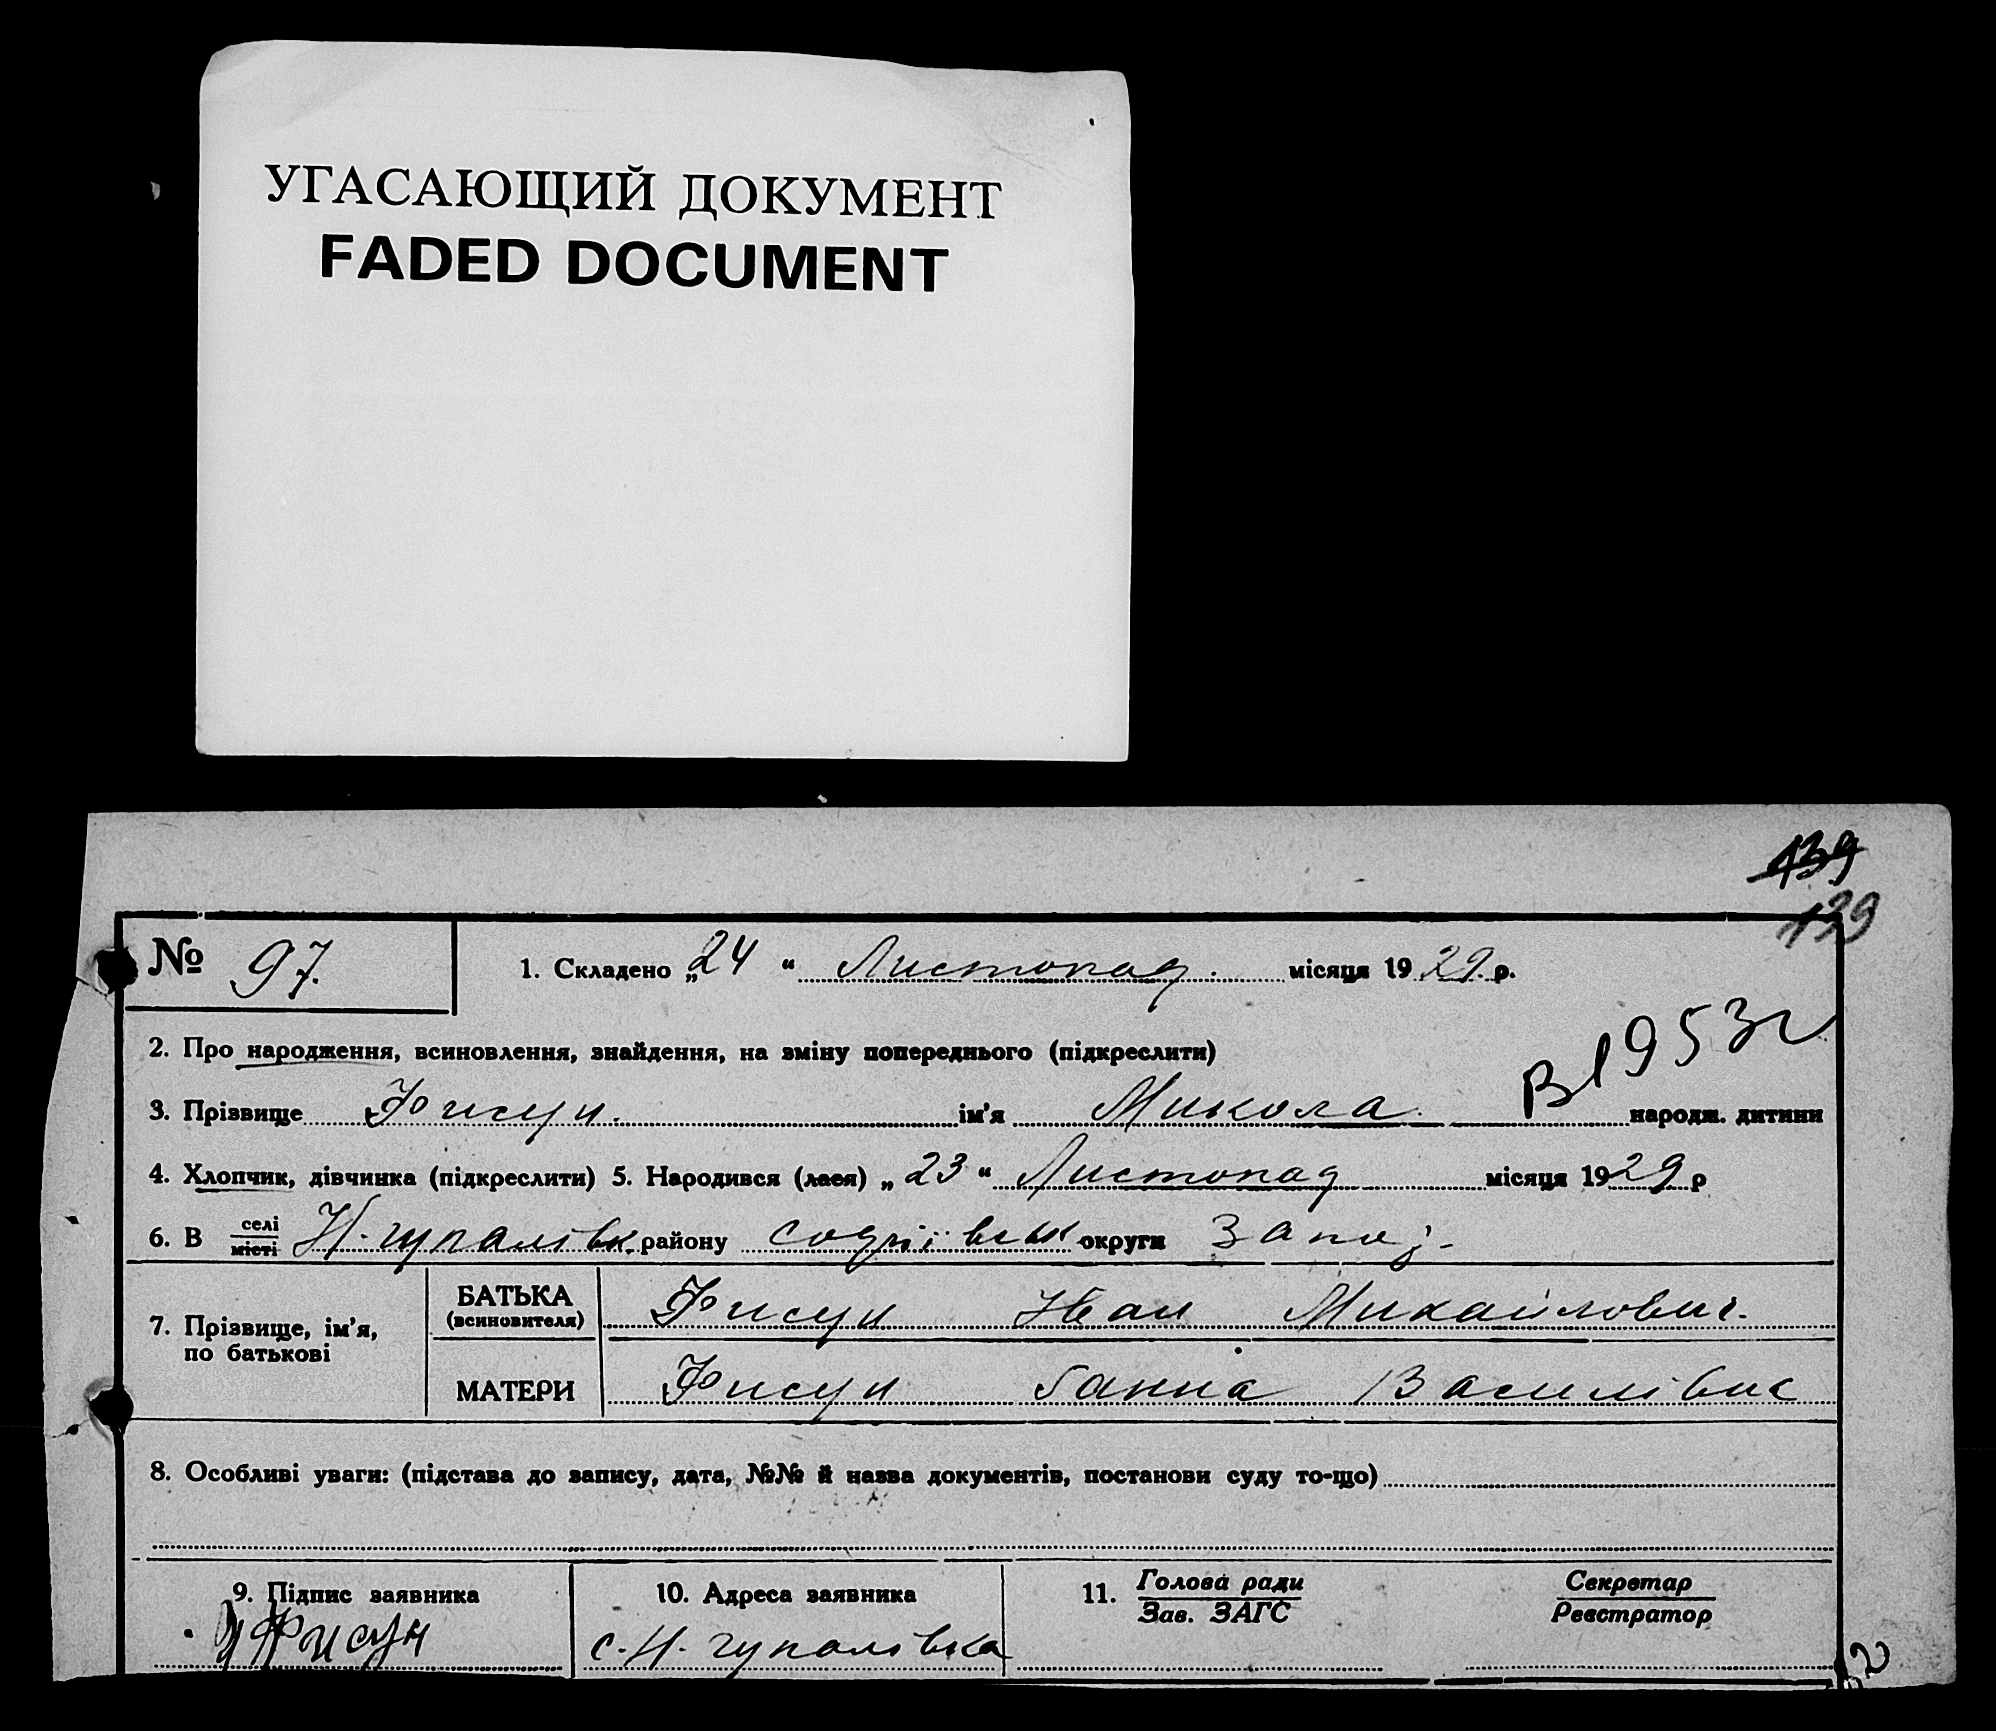 УГАСАЮЩИЙ ДОКУМЕНТ
FADED DOCUMENT
139
139
№ 97. 1. Складено „24“ Листопад. місяця 1929 р.
2. Про народження, всиновлення, знайдення, на зміну попереднього (підкреслити)
В 1953 г
3. Прізвище Фисун. ім'я Микола. народж. дитини
4. Хлопчик, дівчинка (підкреслити) 5. Народився (лася) „23“ Листопад місяця 1929 р
6. В селі
місті Н. гупалівк. району округи Запоj.
7. Прізвище, ім'я,
по батькові
БАТЬКА
(всиновителя) Фисун Іван Михайлович.
МАТЕРИ Фисун Ганна Василівна
8. Особливі уваги: (підстава до запису, дата, №№ й назва документів, постанови суду то-що)
9. Підпис заявника 10. Адреса заявника 11. Голова ради
Зав. ЗАГС Секретар
Реєстратор
Фисун с. Н. гупалівка